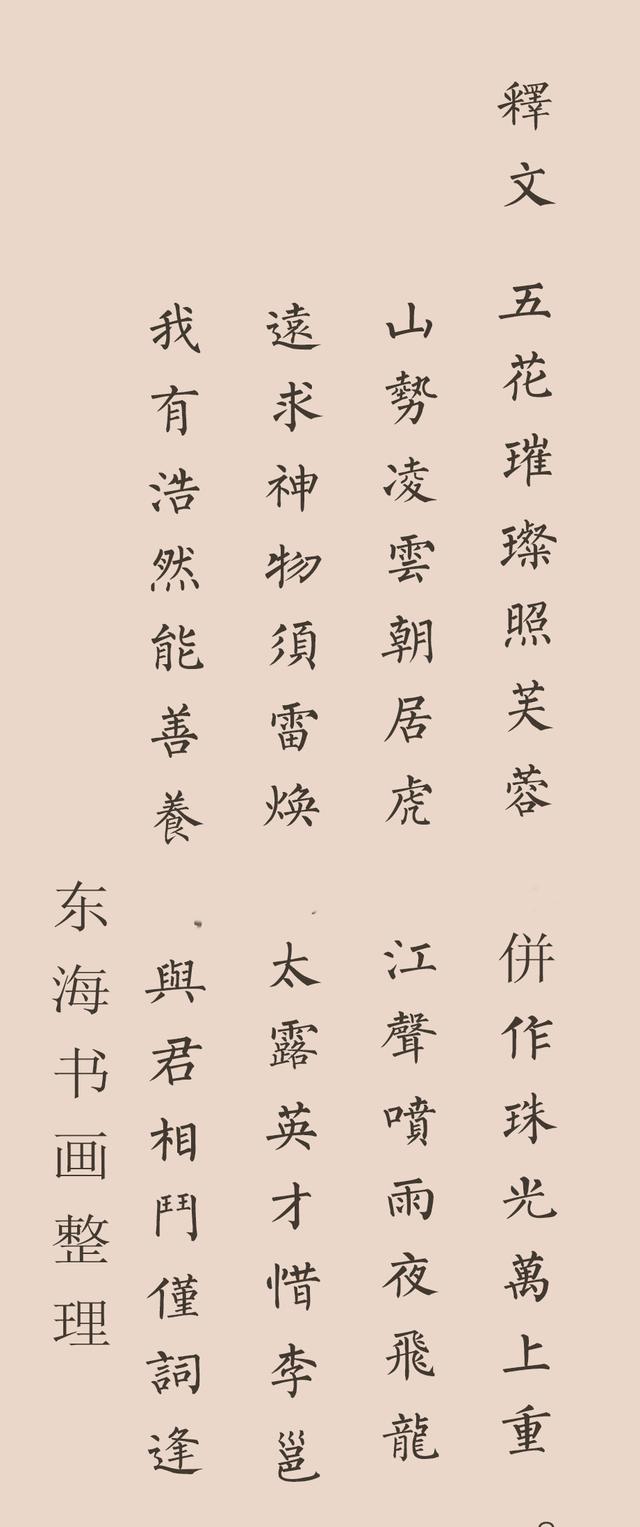 釋文 五花璀璨照芙蓉 併作珠光萬上重
山勢凌雲朝居虎 江聲噴雨夜飛龍
遠求神物須雷煥 太露英才惜李邕
我有浩然能善養 與君相鬥僅詞逢
东海书画整理